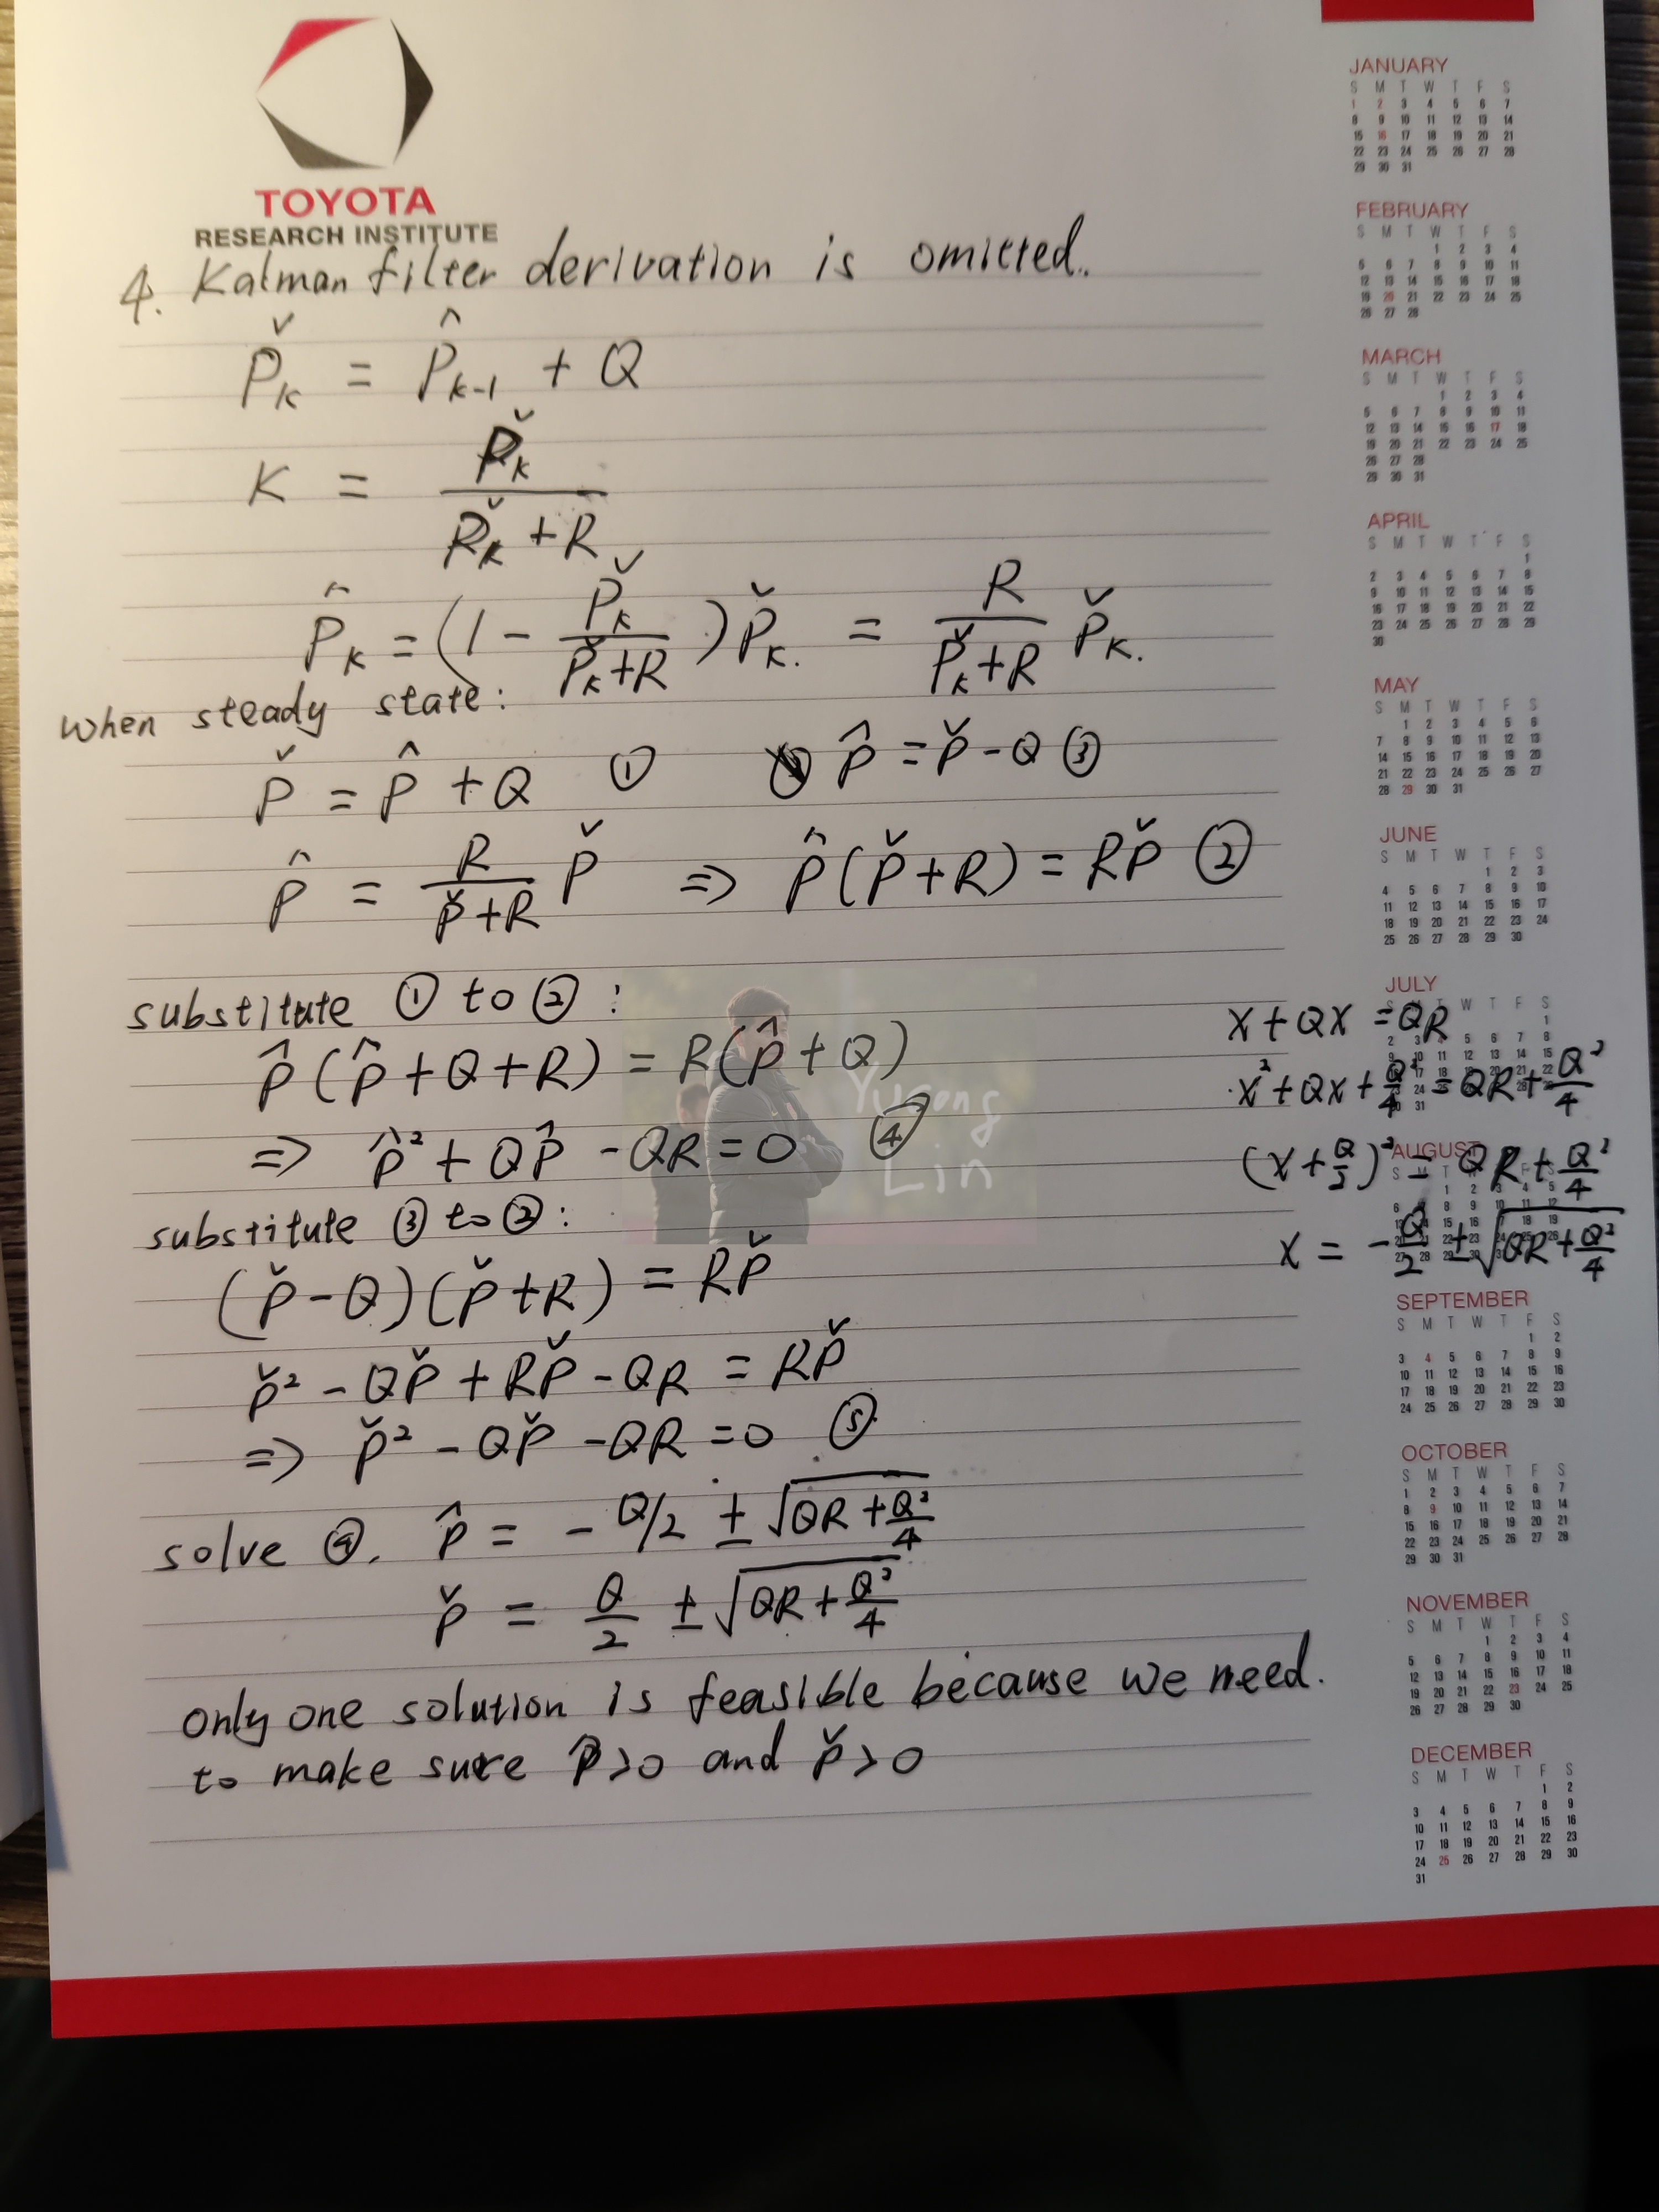 TOYOTA
RESEARCH INSTITUTE
4. Kalman filter derivation is omitted.
P̌ₖ = P̂ₖ₋₁ + Q
K = P̌ₖ / (P̌ₖ + R)
P̂ₖ = (1 - P̌ₖ / (P̌ₖ + R)) P̌ₖ. = R / (P̌ₖ + R) P̌ₖ.
when steady state:
P̌ = P̂ + Q ① P̂ = P̌ - Q ③
P̂ = R / (P̌ + R) P̌ ⇒ P̂(P̌ + R) = RP̌ ②
substitute ① to ② :
P̂(P̂ + Q + R) = R(P̂ + Q)
⇒ P̂² + QP̂ - QR = 0 ④
substitute ③ to ② :
(P̌ - Q)(P̌ + R) = RP̌
P̌² - QP̌ + RP̌ - QR = RP̌
⇒ P̌² - QP̌ - QR = 0 ⑤
solve ④. P̂ = - Q/2 ± √(QR + Q²/4)
P̌ = Q/2 ± √(QR + Q²/4)
only one solution is feasible because we need.
to make sure P̂>0 and P̌>0
x + Qx = QR
x² + Qx + Q²/4 = QR + Q²/4
(x + Q/2)² = QR + Q²/4
x = -Q/2 ± √(QR + Q²/4)
Yurong
Lin
JANUARY
S M T W T F S
1 2 3 4 5 6 7
8 9 10 11 12 13 14
15 16 17 18 19 20 21
22 23 24 25 26 27 28
29 30 31
FEBRUARY
S M T W T F S
1 2 3 4
5 6 7 8 9 10 11
12 13 14 15 16 17 18
19 20 21 22 23 24 25
26 27 28
MARCH
S M T W T F S
1 2 3 4
5 6 7 8 9 10 11
12 13 14 15 16 17 18
19 20 21 22 23 24 25
26 27 28
29 30 31
APRIL
S M T W T F S
1
2 3 4 5 6 7 8
9 10 11 12 13 14 15
16 17 18 19 20 21 22
23 24 25 26 27 28 29
30
MAY
S M T W T F S
1 2 3 4 5 6
7 8 9 10 11 12 13
14 15 16 17 18 19 20
21 22 23 24 25 26 27
28 29 30 31
JUNE
S M T W T F S
1 2 3
4 5 6 7 8 9 10
11 12 13 14 15 16 17
18 19 20 21 22 23 24
25 26 27 28 29 30
JULY
AUGUST
SEPTEMBER
S M T W T F S
1 2
3 4 5 6 7 8 9
10 11 12 13 14 15 16
17 18 19 20 21 22 23
24 25 26 27 28 29 30
OCTOBER
S M T W T F S
1 2 3 4 5 6 7
8 9 10 11 12 13 14
15 16 17 18 19 20 21
22 23 24 25 26 27 28
29 30 31
NOVEMBER
S M T W T F S
1 2 3 4
5 6 7 8 9 10 11
12 13 14 15 16 17 18
19 20 21 22 23 24 25
26 27 28 29 30
DECEMBER
S M T W T F S
1 2
3 4 5 6 7 8 9
10 11 12 13 14 15 16
17 18 19 20 21 22 23
24 25 26 27 28 29 30
31